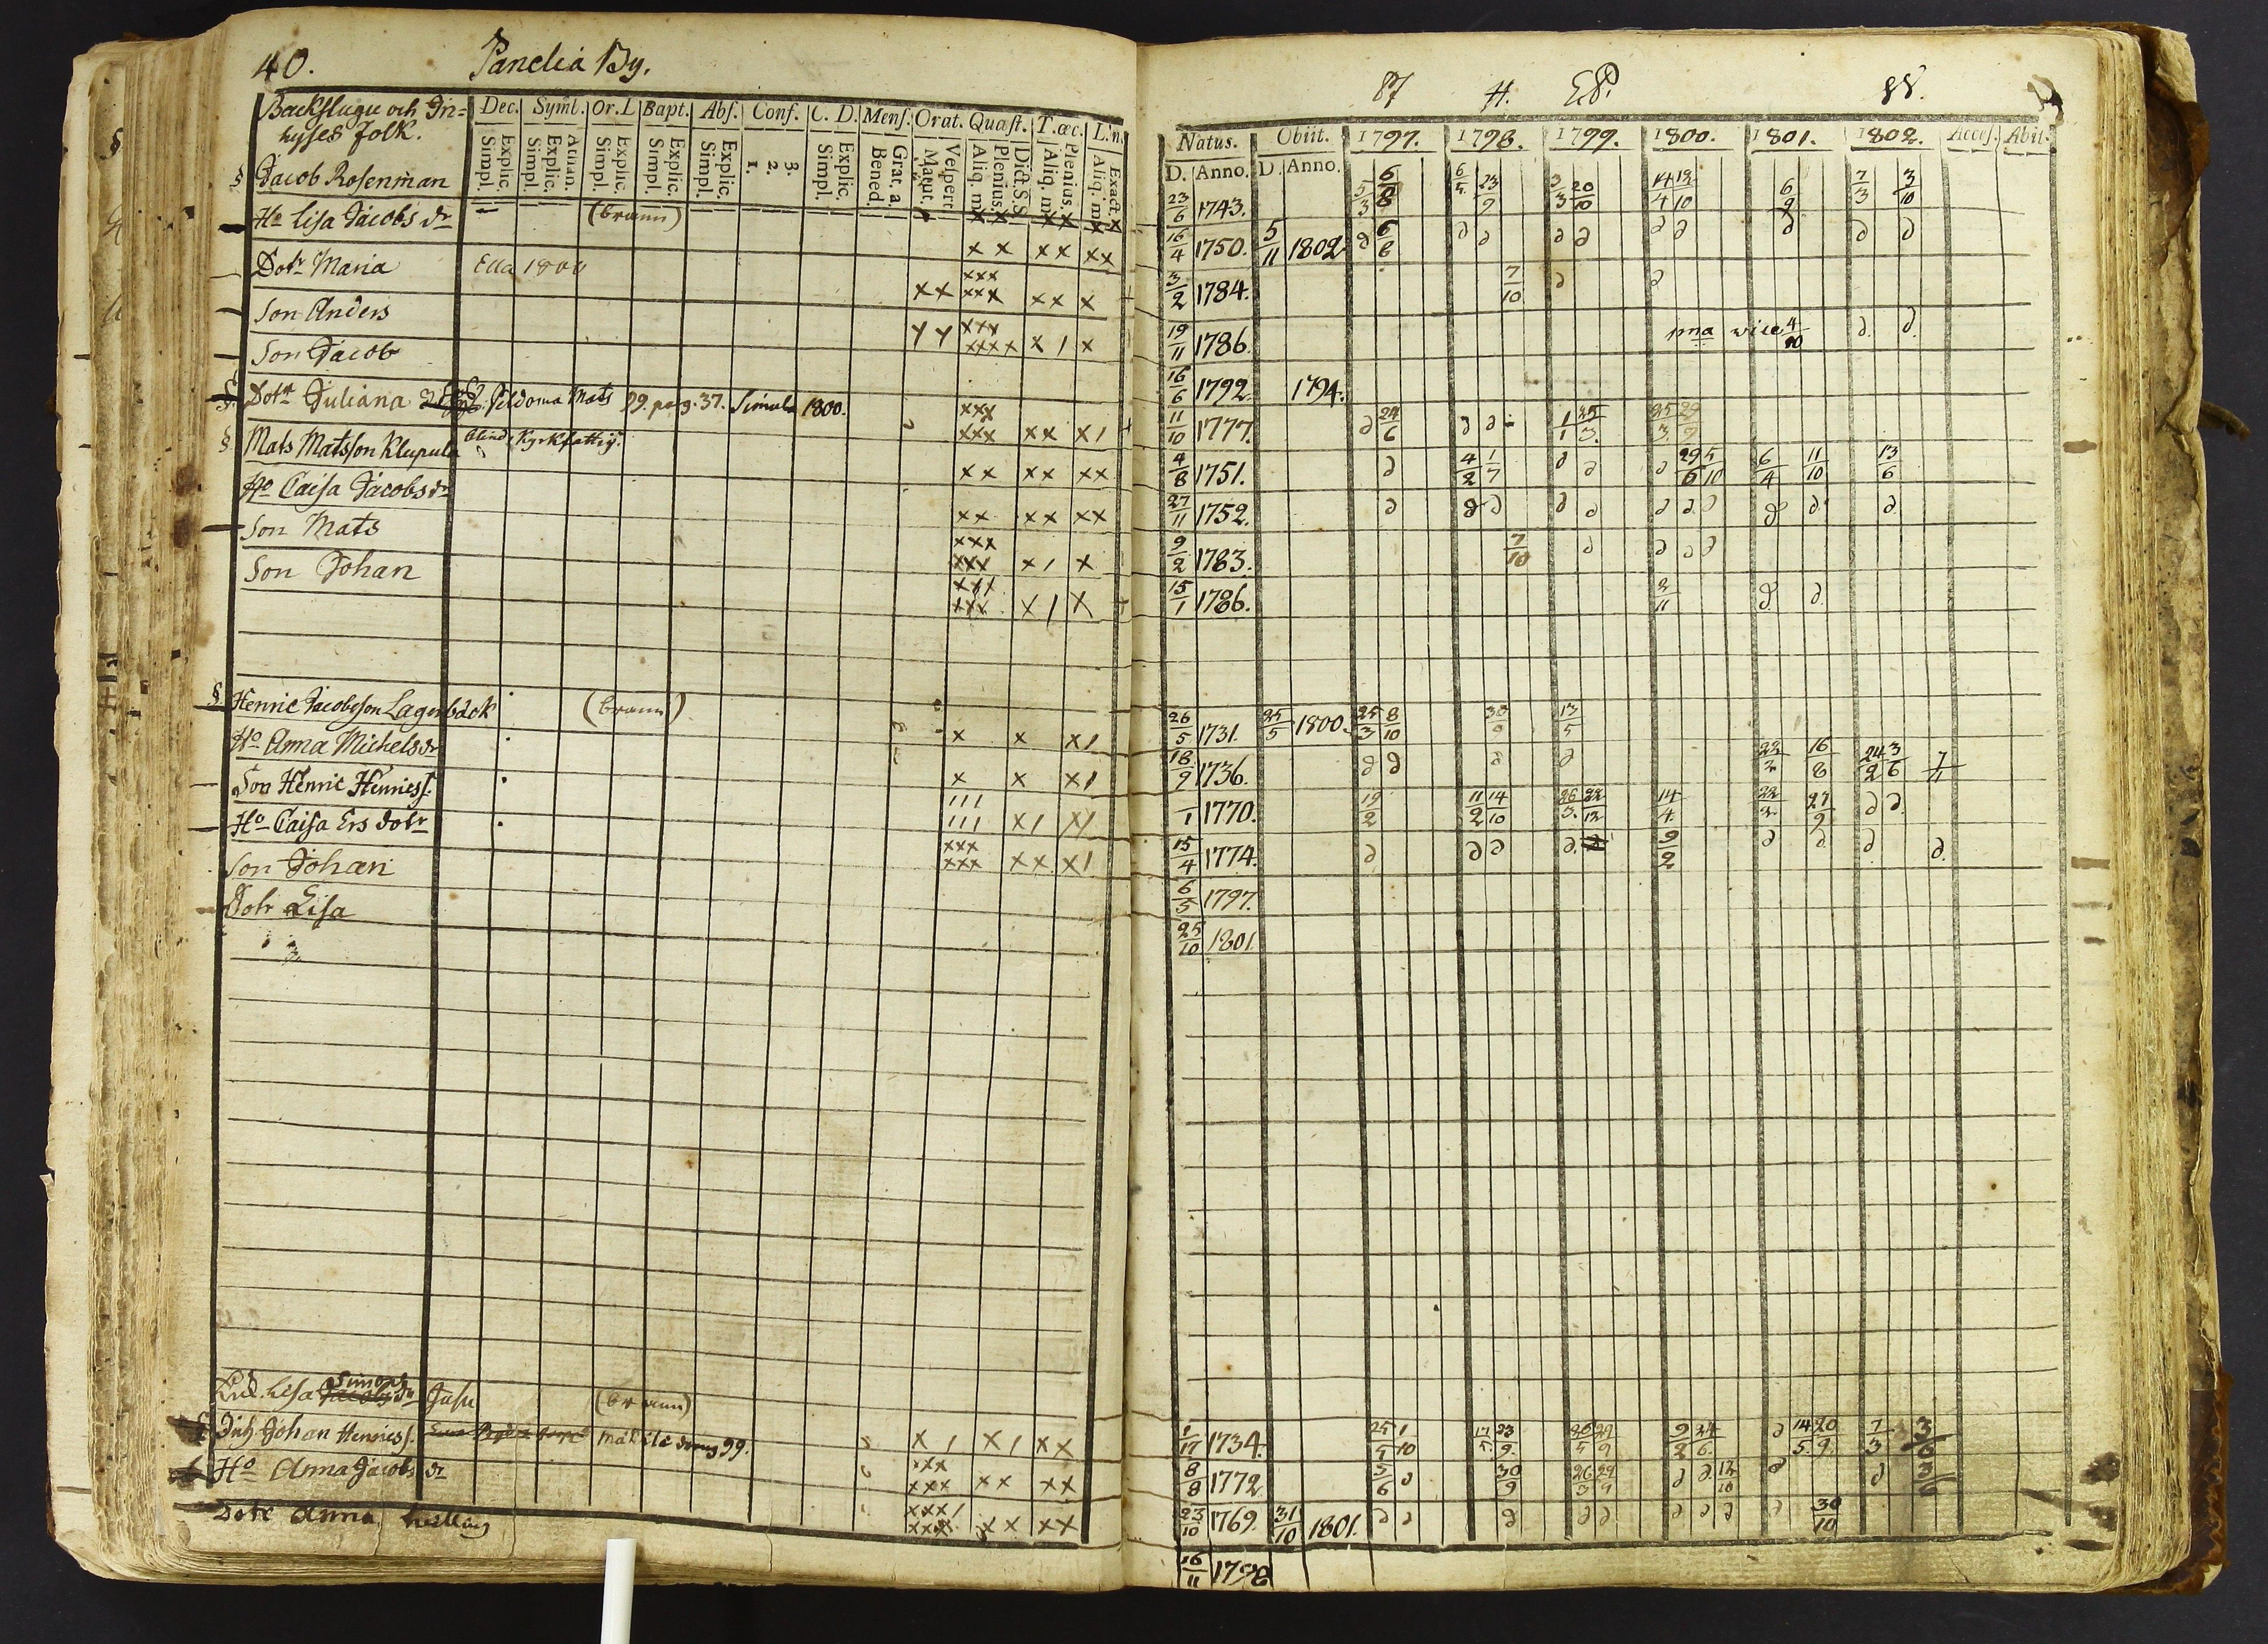 40. Panelia By.
Backstugu och In-
hyses folk.
Dec. Symb. Or. D. Bapt. Abs. Conf. C. D. Mens. Orat. Quæst. T. œc. L. n.
Simpl. Explic. Simpl. Explic. Athan. Simpl. Explic. Simpl. Explic. Simpl. Explic. 1. 2. 3. Simpl. Explic. Bened. Grat. a. Matut. Vespert. Aliq. m. Plenius. Dict. S.S. Aliq. m. Plenius. Aliq. m. Exact.
§ Jacob Rosenman
Ho Lisa Jacobs dr (brann)
Dotr Maria Ella 1800
Son Anders
Son Jacob
§ Dotr Juliana Peldoma Mats 99. pag. 37. Simula 1800.
§ Mats Matsson Klupula blind, Kyrkfattig.
Ho Caisa Jacobs dr
Son Mats
Son Johan
§ Henric Jacobsson Lagerbäck (brann)
Ho Anna Michels dr
Son Henric Henrics.
Ho Caisa Ers dotr
Son Johan
Dotr Lisa
Lisa Simons Jacobs dr (brann)
Inh Johan Henrics. 99.
Ho Anna Jacobs dr
Dotr Anna
87 H. 88.
Natus. Obiit. 1797. 1798. 1799. 1800. 1801. 1802. Access. Abit.
D. Anno. D. Anno.
23/6 1743. 5/3 6/8 6/5 23/9 3/3 20/10 14/4 12/10 6/9 7/3 3/10
16/4 1750. 5/11 1802 d 6/8 d d d d d d d d d
3/2 1784. 7/10 d d
19/11 1786. 1ma vice 4/10 d. d.
16/6 1792. 1794.
11/10 1777. d 24/6 d d 1/1 25/3. 25/3. 29/9
4/8 1751. d 4/2 1/7 d d d 29/6 5/10 6/4 11/10 13/6
27/11 1752. d d d d d d d d d d. d
9/2 1783. 7/10 d d d d
15/1 1786. 2/11 d d.
26/5 1731. 25/5 1800. 25/3 8/10 30/9 13/5
18/9 1736. d d d d 22/2 16/8 24/2 3/6 7/11
/1 1770. 19/2 11/2 14/10 26/3. 22/12 14/4 22/2 27/9 d d.
15/4 1774. d d d d. 9/2 d d d d.
6/5 1797.
25/10 1801
1/17 1734. 25/5 1/10 17/5. 23/9. 26/5 29/9 9/2 24/6. d 14/5. 20/9. 7/3 3/6
8/8 1772 5/6 d 30/9 26/3 29/9 d d. 12/10 d d 3/6
23/10 1769. 31/10 1801. d d d d d d d d d 30/10
16/11 1798